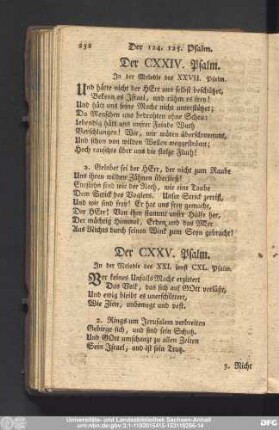 232 Der 124. 125. Psalm.
Der CXXIV. Psalm.
In der Melodie des XXVII. Psalm.
Und hätte nicht der HErr uns selbst beschützet,
Bekenn es Israel, und rühm es fren!
Und hätt uns seine Macht nicht unterstützet;
Da Menschen uns bedrohten ohne Scheu:
Lebendig hätt uns unsrer Feinde Wuth
Verschlungen! Wir, wir wären überschwemmt,
Und schon von wilden Wellen weggeströmt;
Hoch rauschte über uns die stolze Fluth!
2. Gelobet sei der HErr, der nicht zum Raube
Uns ihren wilden Zähnen überließ!
Entflohn sind wir der Noth, wie eine Taube
Dem Strick des Voglers. Unser Strick zerriß,
Und wir sind frey! Er hat uns frey gemacht,
Der HErr! Von ihm kommt unsre Hülfe her,
Der mächtig Himmel, Erden und das Meer
Aus Nichts durch seinen Wink zum Seyn gebracht!
Der CXXV. Psalm.
In der Melodie des XXI. sonst CXL. Psalm.
Vor keines Unfalls Macht erzittert
Das Volk, das sich auf GOtt verläßt,
Und ewig bleibt es unerschüttert,
Wie Zion, unbewegt und vest.
2. Rings um Jerusalem verbreiten
Gebirge sich, und sind sein Schutz.
Und GOtt umschanzt zu allen Zeiten
Sein Israel, und ist sein Trutz.
3. Nicht
Universitäts- und Landesbibliothek Sachsen-Anhalt
urn:nbn:de:gbv:3:1-1192015415-153118256-14